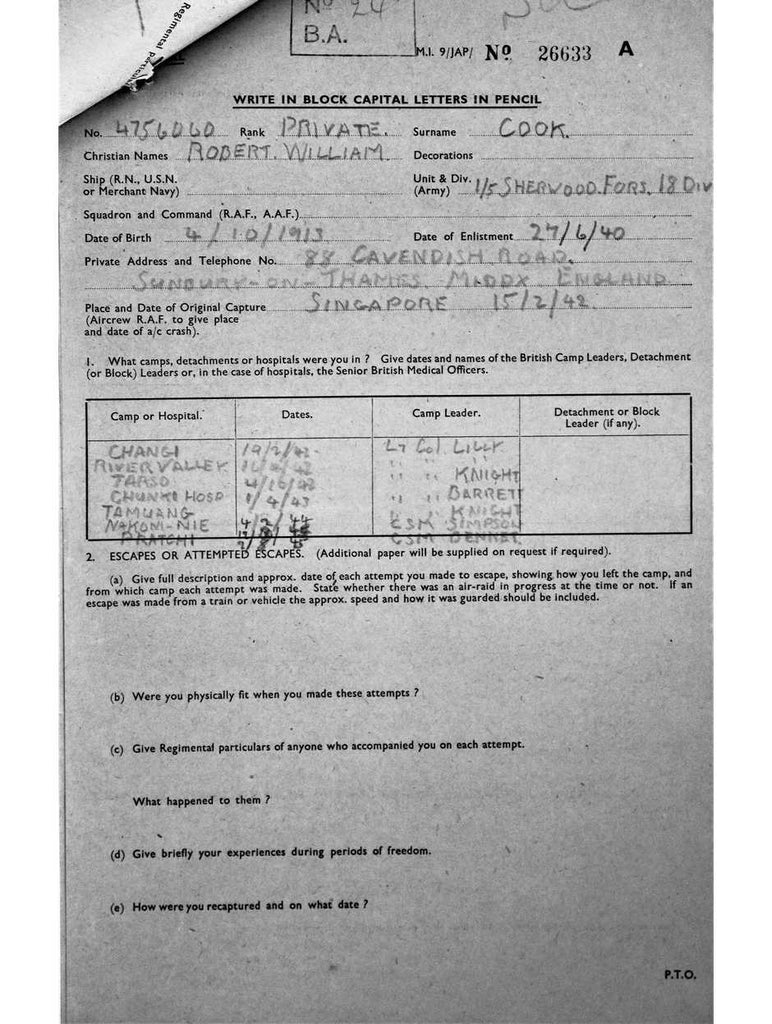 Regimental particulars
No 24
B.A.
M.I. 9/JAP/ No. 26633 A
WRITE IN BLOCK CAPITAL LETTERS IN PENCIL
No. 4756060 Rank PRIVATE. Surname COOK.
Christian Names ROBERT. WILLIAM Decorations
Ship (R.N., U.S.N. or Merchant Navy) Unit & Div. (Army) 1/5 SHERWOOD. FORS. 18 DIV
Squadron and Command (R.A.F., A.A.F.)
Date of Birth 4/10/1913 Date of Enlistment 27/6/40
Private Address and Telephone No. 88 CAVENDISH ROAD.
SUNBURY-ON-THAMES. MIDDX ENGLAND
Place and Date of Original Capture SINGAPORE 15/2/42.
(Aircrew R.A.F. to give place
and date of a/c crash).
1. What camps, detachments or hospitals were you in ? Give dates and names of the British Camp Leaders, Detachment
(or Block) Leaders or, in the case of hospitals, the Senior British Medical Officers.
Camp or Hospital. Dates. Camp Leader. Detachment or Block Leader (if any).
CHANGI 19/2/42. LT COL. LILLY
RIVER VALLEY " " 
TARSO 4/10/42 " " KNIGHT
CHUNKI HOSP 1/4/43 " " BARRETT
TAMUANG " " KNIGHT
NAKOM-NIE 4/2/44 CSM SIMPSON
PRATCHI CSM BENNET
2. ESCAPES OR ATTEMPTED ESCAPES. (Additional paper will be supplied on request if required).
(a) Give full description and approx. date of each attempt you made to escape, showing how you left the camp, and
from which camp each attempt was made. State whether there was an air-raid in progress at the time or not. If an
escape was made from a train or vehicle the approx. speed and how it was guarded should be included.
(b) Were you physically fit when you made these attempts ?
(c) Give Regimental particulars of anyone who accompanied you on each attempt.
What happened to them ?
(d) Give briefly your experiences during periods of freedom.
(e) How were you recaptured and on what date ?
P.T.O.